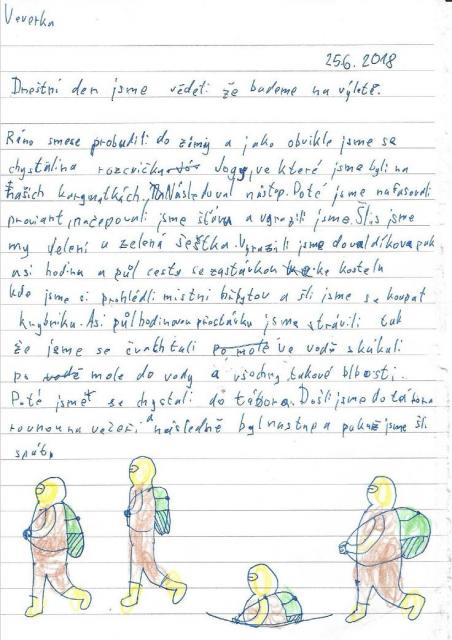 Veverka
25.6.2018
Dnešní den jsme věděli že budeme na výletě.
Ráno smese probudili do zimy a jako obvikle jsme se
chystali na rozcvičku Jogy, ve které jsme byli na
našich karymatkách. Následoval nástop. Poté jsme nafasovali
proviant, načepovali jsme šťávu a vyrazili jsme. Šlis jsme
my želení a zelená šestka. Vyrazili jsme do pak
asi hodina a půl cesty se zastávkou ke kostelu
kde jsme si prohlédli místní hřbytov a šli jsme se koupat
k rybníku. Asi půlhodinovou přestávku jsme strávili tak
že jsme se čvachtali po mole ve vodě skákali
po vodě mole do vody a všechny takové blbosti.
Poté jsme se chystali do tábora. Došli jsme do tábora
rovnou na večeři a následně byl nástup a pak už jsme šli
spát.